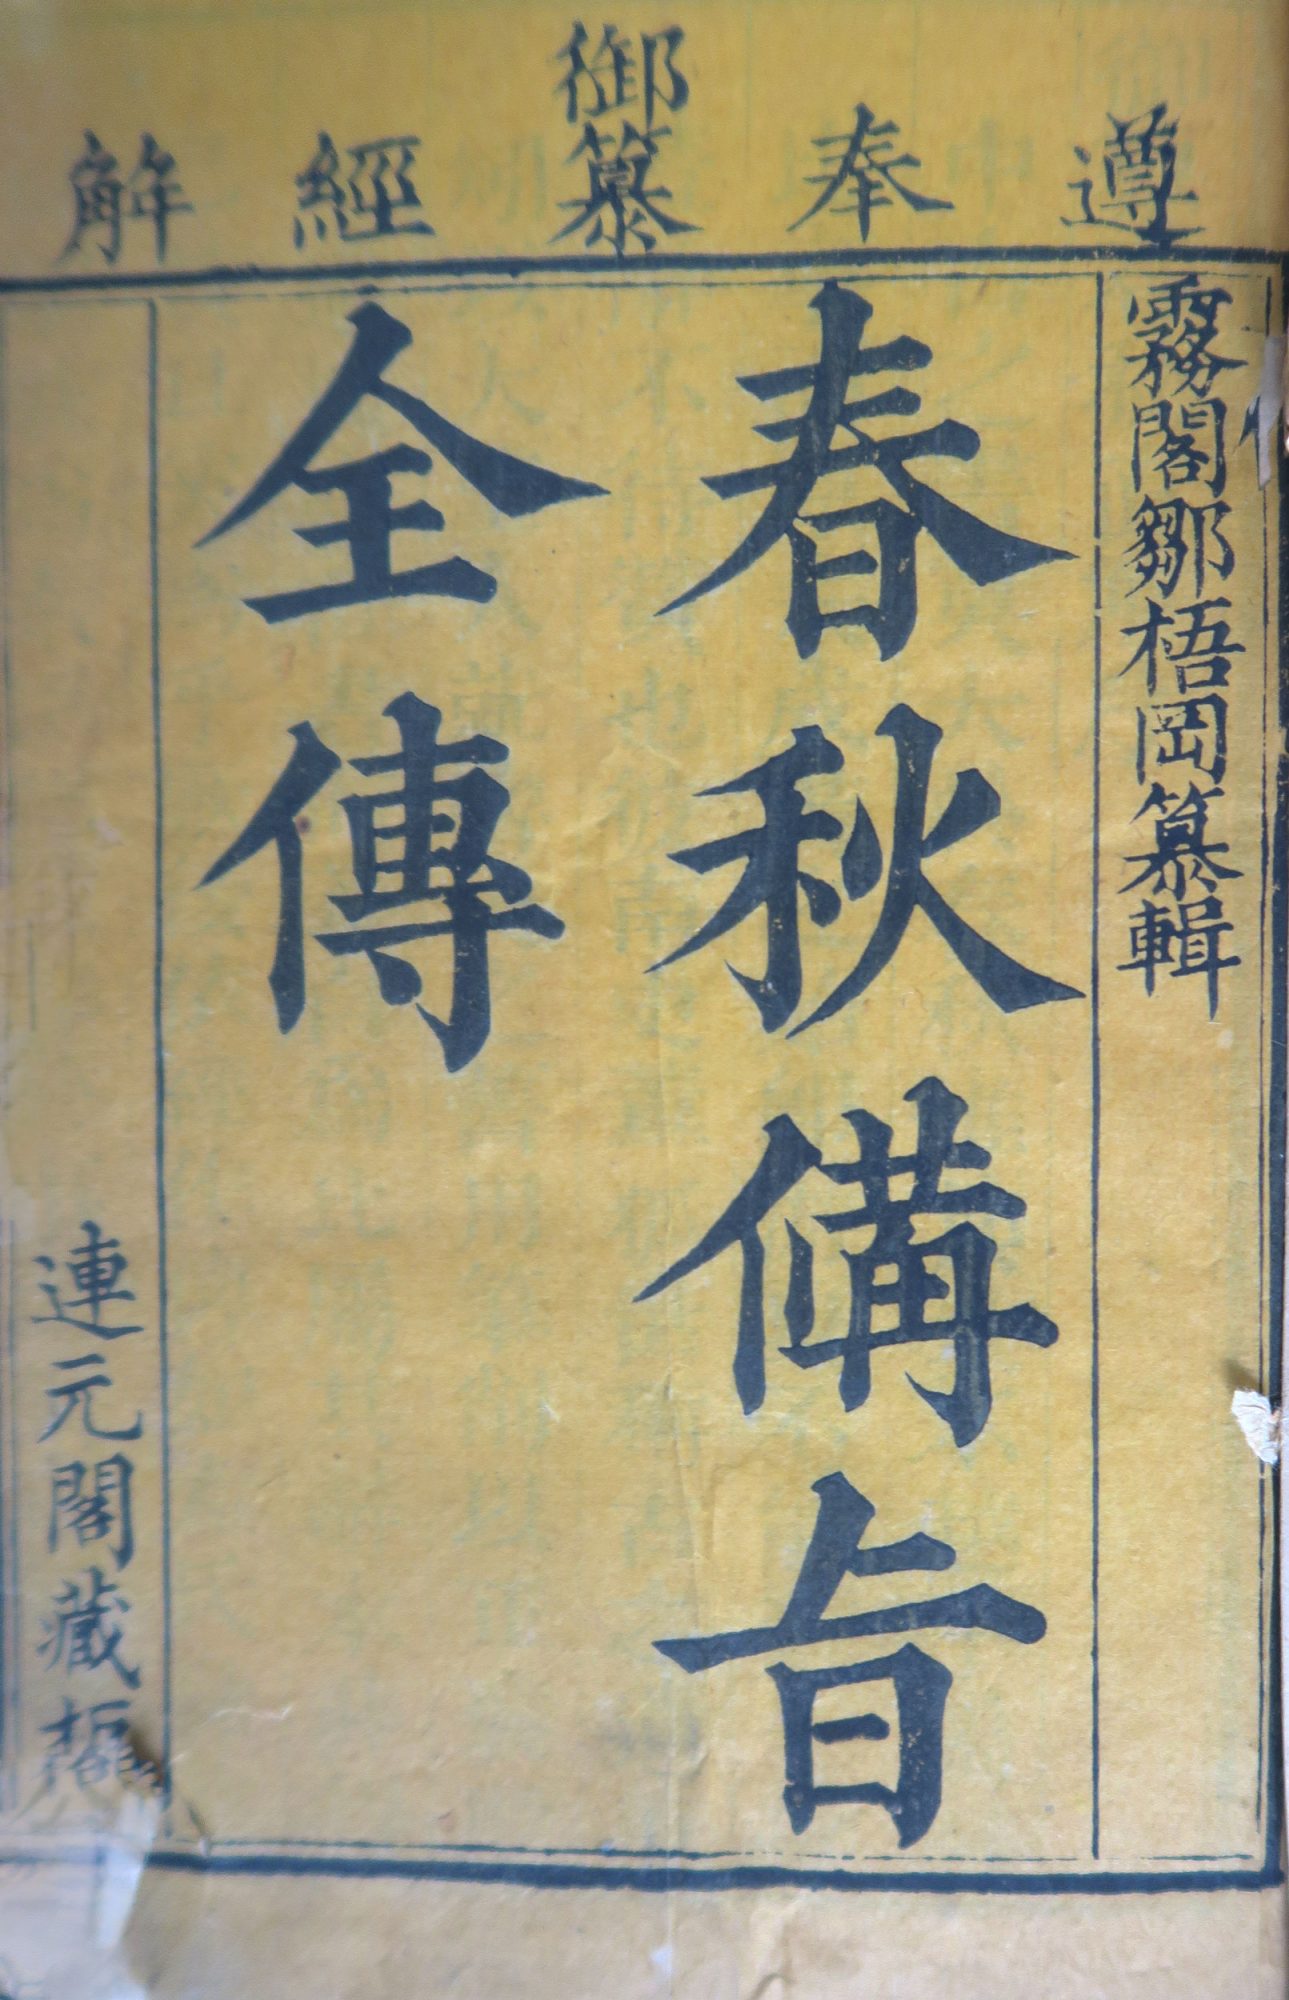 遵奉御纂經解
霧閣鄒梧岡纂輯
春秋備旨
全傳
連元閣藏板